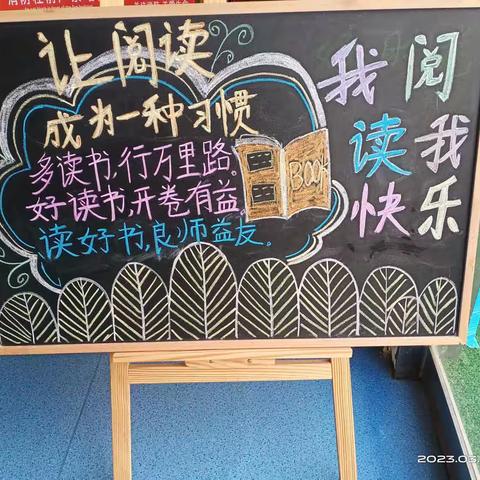 让阅读
成为一种习惯
多读书,行万里路。
好读书,开卷有益。
读好书,良师益友。
BOOK
我阅
读我
快乐
2023.03